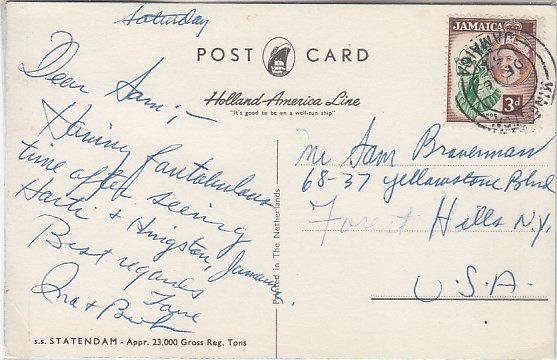 Saturday
POST CARD
Holland-America Line
"It's good to be on a well-run ship"
JAMAICA
3d
JAMAICA
Dear Sam;-
Having fantabulous
time after seeing
Haiti & Kingston, Jamaica,
Best regards
Mr Sam Braverman
68-37 Yellowstone Blvd
Forest Hills N.Y.
U.S.A.
Printed in The Netherlands
s.s. STATENDAM - Appr. 23,000 Gross Reg. Tons